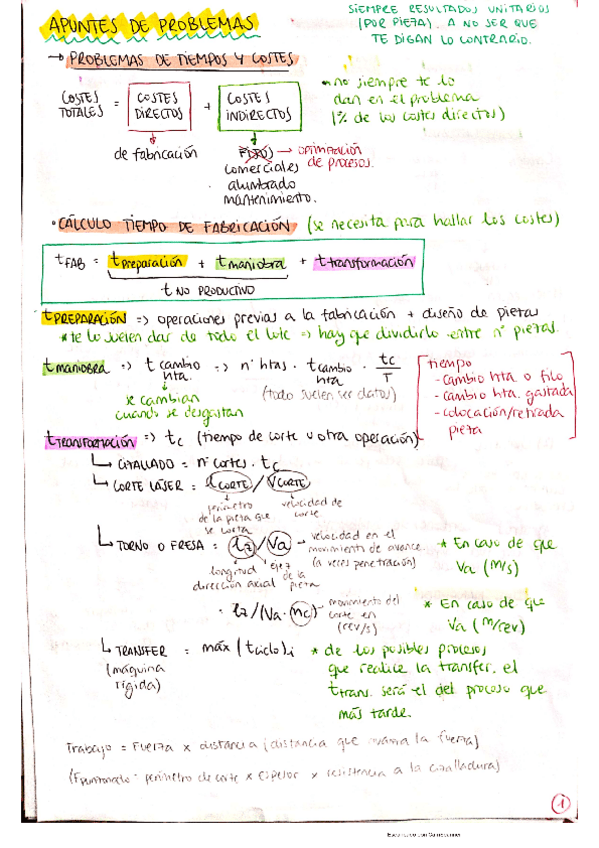 APUNTES DE PROBLEMAS
SIEMPRE RESULTADOS UNITARIOS
(POR PIEZA). A NO SER QUE
TE DIGAN LO CONTRARIO.
→ PROBLEMAS DE TIEMPOS Y COSTES
COSTES TOTALES = COSTES DIRECTOS + COSTES INDIRECTOS
no siempre te lo
dan en el problema
(% de los costes directos)
de fabricación
FIJOS → optimización
de procesos.
comerciales
alumbrado
mantenimiento.
• CÁLCULO TIEMPO DE FABRICACIÓN (se necesita para hallar los costes)
tFAB = tpreparación + tmaniobra + ttransformación
t NO PRODUCTIVO
tPREPARACIÓN => operaciones previas a la fabricación + diseño de piezas
* te lo suelen dar de todo el lote => hay que dividirlo entre nº piezas.
tmaniobra => t cambio hta. => nº htas · t cambio hta · tc/T
se cambian
cuando se desgastan
(todo suelen ser datos)
tiempo
- cambio hta o filo
- cambio hta. gastada
- colocación/retirada
pieza
tTRANSFORMACIÓN => tc (tiempo de corte u otra operación)
↳ CIZALLADO = nº cortes · tc
↳ CORTE LÁSER = LCORTE / VCORTE
perímetro
de la pieza que
se corta
velocidad de
corte
↳ TORNO O FRESA = lz / Va
velocidad en el
movimiento de avance
(a veces penetración)
* En caso de que
Va (m/s)
longitud eje z
dirección axial de la pieza
· lz/(Va · nc)
movimiento del
corte en
(rev/s)
* En caso de que
Va (m/rev)
↳ TRANSFER = máx (t ciclo)i
(máquina
rígida)
* de los posibles procesos
que realice la transfer, el
ttrans. será el del proceso que
más tarde.
Trabajo = Fuerza x distancia (distancia que la fuerza)
perímetro de corte x espesor x resistencia a la cizalladura)
1
Escaneado con CamScanner